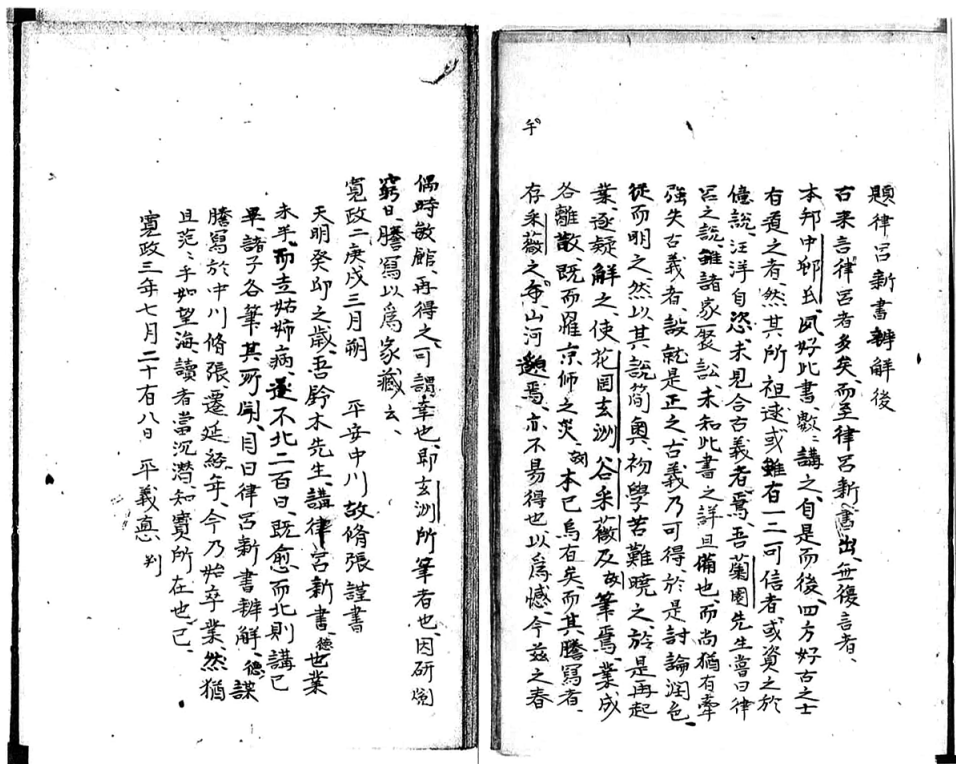 午
題律呂新書辨解後
古来言律呂者多矣、而至律呂新書出、無復言者、
本邦中邨氏、夙好此書、數〻講之、自是而後、四方好古之士
有道之者、然其所祖述或雖有一二可信者或資之於
億說、汪洋自恣、未見合古義者焉、吾蘭園先生嘗曰律
呂之說、雖諸家聚訟、未知此書之詳且備也而尚猶有牽
強失古義者、設就是正之古義乃可得於是討論潤色、
從而明之、然以其說簡奧、初學苦難曉之、於是再起
業、逐疑解之、使花園玄渕、谷采薇及故筆焉、業成
各離散、既而罹京師之災、故本已烏有矣、而其騰寫者、
存采薇之、山河邈焉、亦不易得也以為憾、今茲之春
偶時敏館、再得之、可謂幸也、即玄渕所筆者也、因研
窮日、騰寫以爲家藏云、
寛政二庚戌三月朔　平安中川故脩張謹書
天明癸卯之歳、吾鈴木先生、講律呂新書、德也業
未半、而去姑姉病、遂不北二百日、既愈而北則講已
畢、諸子各筆其所聞、目曰律呂新書辨解、德謀
騰寫於中川脩張、遷延経年、今乃始卒業、然猶
且茫〻乎如望海讀者當沉潛、知實所在也已、
寛政三年七月二十有八日　平義悳判